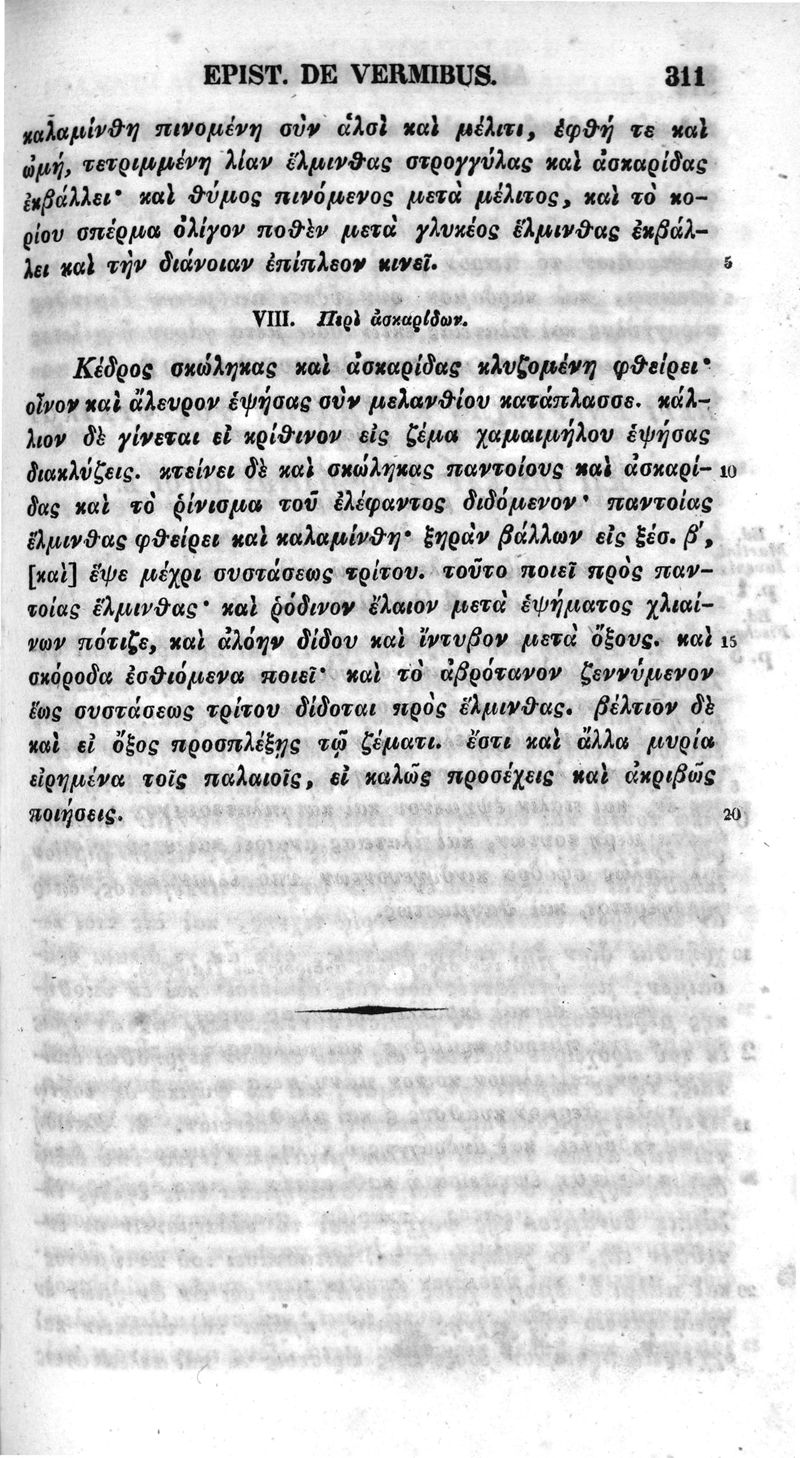 EPIST. DE VERMIBUS. 311
καλαμίνθη πινομένη σὺν ἁλσὶ καὶ μέλιτι, ἑφθή τε καὶ
ὠμή, τετριμμένη λίαν ἕλμινθας στρογγύλας καὶ ἀσκαρίδας
ἐκβάλλει· καὶ θύμος πινόμενος μετὰ μέλιτος, καὶ τὸ κο-
ρίου σπέρμα ὀλίγον ποθὲν μετὰ γλυκέος ἕλμινθας ἐκβάλ-
λει καὶ τὴν διάνοιαν ἐπίπλεον κινεῖ. 5
VIII. Περὶ ἀσκαρίδων.
Κέδρος σκώληκας καὶ ἀσκαρίδας κλυζομένη φθείρει·
οἶνον καὶ ἄλευρον ἑψήσας σὺν μελανθίου κατάπλασσε. κάλ-
λιον δὲ γίνεται εἰ κρίθινον εἰς ζέμα χαμαιμήλου ἑψήσας
διακλύζεις. κτείνει δὲ καὶ σκώληκας παντοίους καὶ ἀσκαρί- 10
δας καὶ τὸ ῥίνισμα τοῦ ἐλέφαντος διδόμενον· παντοίας
ἕλμινθας φθείρει καὶ καλαμίνθη· ξηρὰν βάλλων εἰς ξέσ. β′,
[καὶ] ἕψε μέχρι συστάσεως τρίτου. τοῦτο ποιεῖ πρὸς παν-
τοίας ἕλμινθας· καὶ ῥόδινον ἔλαιον μετὰ ἑψήματος χλιαί-
νων πότιζε, καὶ ἀλόην δίδου καὶ ἴντυβον μετὰ ὄξους. καὶ 15
σκόροδα ἐσθιόμενα ποιεῖ· καὶ τὸ ἀβρότανον ζεννύμενον
ἕως συστάσεως τρίτου δίδοται πρὸς ἕλμινθας. βέλτιον δὲ
καὶ εἰ ὄξος προσπλέξῃς τῷ ζέματι. ἔστι καὶ ἄλλα μυρία
εἰρημένα τοῖς παλαιοῖς, εἰ καλῶς προσέχεις καὶ ἀκριβῶς
ποιήσεις. 20